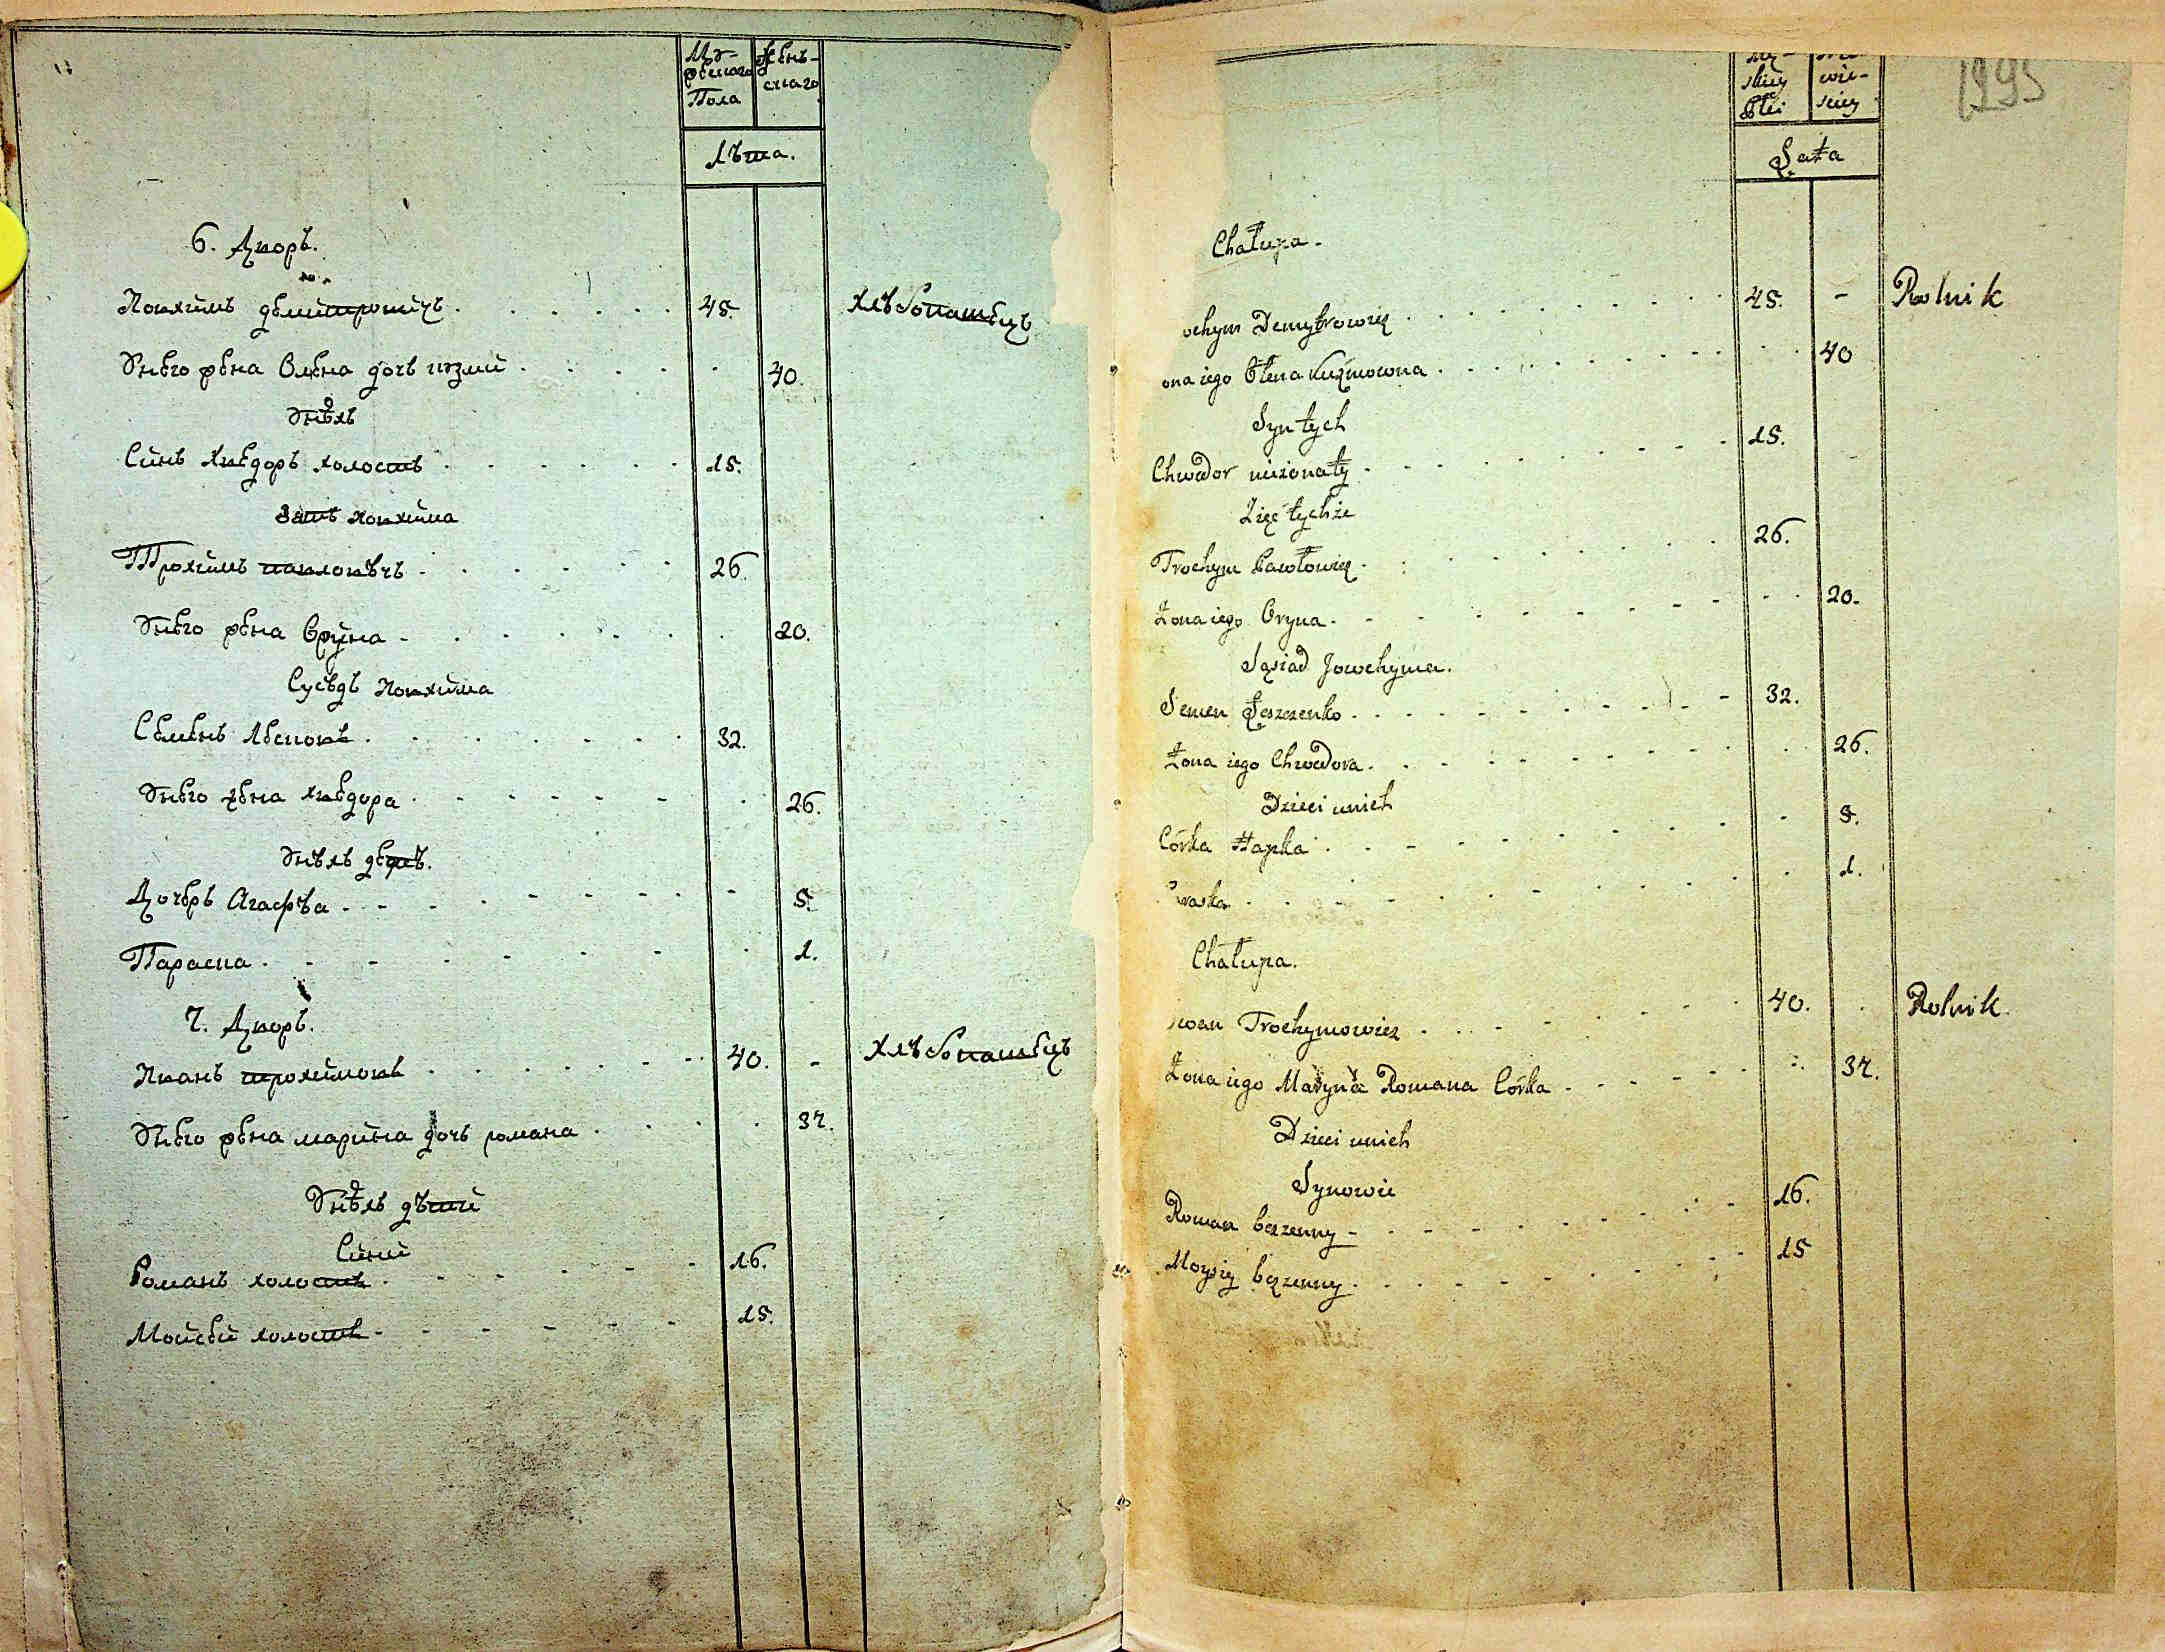 Му-
жескаго
Пола
Женъ-
скаго
лѣта.
6. Дворъ.
Иовхимъ демитровичъ 45. хлѣбопашецъ
Унего жена Олена дочъ кузми 40.
Унѣхъ
Синъ Хведоръ холостъ 15.
Зять Иовхима
Трохимъ павловичъ 26.
Унего жена Орина 20.
Сусѣдъ Иовхима
Семенъ 32.
Унего жена хведора 26.
Унѣхъ дети.
Дочеръ Агафѣа 5.
Параска 1.
7. Дворъ.
Иванъ трохимовъ 40. - хлѣбопашецъ
Унего жена марина дочъ романа 37.
Унѣхъ дѣти
Сини
Романъ холостъ 16.
Мойсей холостъ 15.
1995
skiey
Płci
wie-
skiey
Lata
Chałupa.
ochym Demytrowicz 45. - Rolnik
ona iego Ołena Kuźmowna 40
Syn tych
Chwedor nieżonaty 15.
Zięć tychże
Trochym Pawłowicz 26.
Żona iego Oryna 20.
Sąsiad Jowchyma.
Semen 32.
Żona iego Chwedora 26.
Dzieci unich
Córka Hapka 5.
raska 1.
Chałupa.
wan Trochymowicz 40. Rolnik.
Żona iego Maryna Romana Córka 37.
Dzieci unich
Synowie
Roman bezzenny 16.
Moysiey bezzenny 15